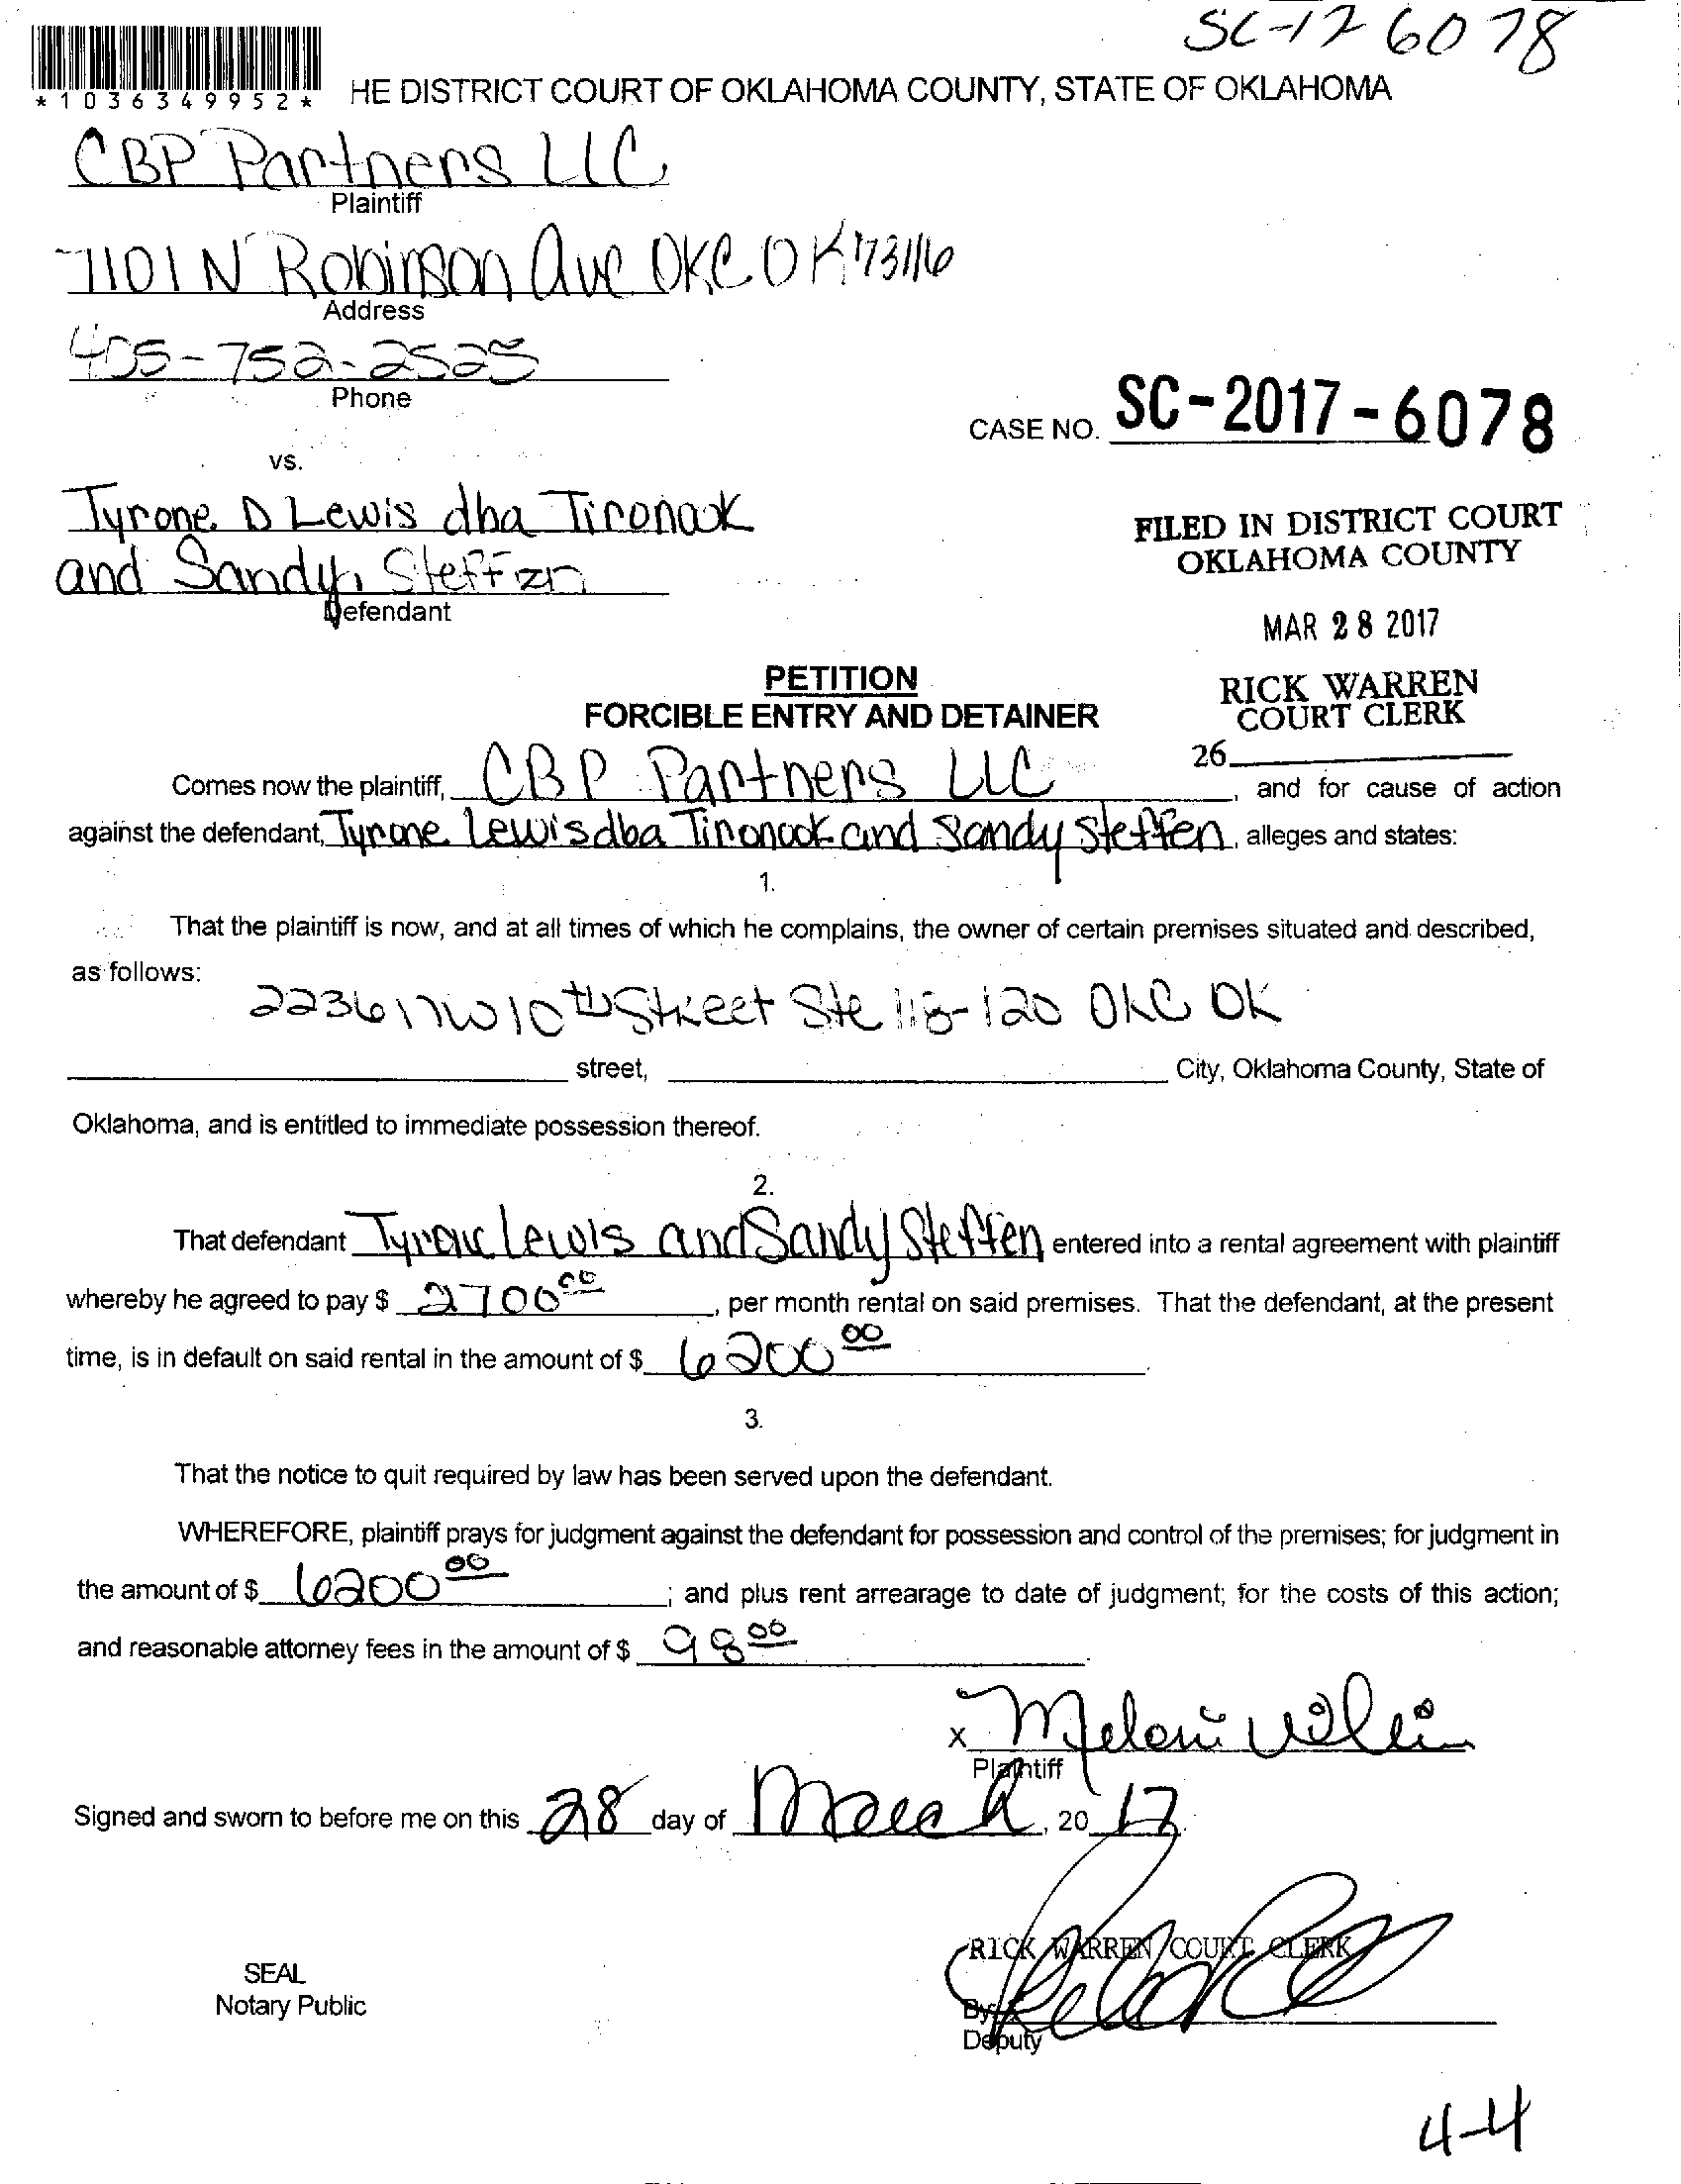 SC-17 6078
*1036349952*
HE DISTRICT COURT OF OKLAHOMA COUNTY, STATE OF OKLAHOMA
CBP Partners LLC
Plaintiff
7101 N Robinson Ave OKC OK 73116
Address
405-752-2525
Phone
CASE NO. SC-2017-6078
vs.
Tyrone D Lewis dba Tironook
and Sandy Steffen
Defendant
FILED IN DISTRICT COURT
OKLAHOMA COUNTY
MAR 28 2017
RICK WARREN
COURT CLERK
26
PETITION
FORCIBLE ENTRY AND DETAINER
Comes now the plaintiff, CBP Partners LLC, and for cause of action
against the defendant, Tyrone Lewis dba Tironook and Sandy Steffen, alleges and states:
1.
That the plaintiff is now, and at all times of which he complains, the owner of certain premises situated and described,
as follows:
2236 NW 10th Street Ste 118-120 OKC OK
street, City, Oklahoma County, State of
Oklahoma, and is entitled to immediate possession thereof.
2.
That defendant Tyrone Lewis and Sandy Steffen entered into a rental agreement with plaintiff
whereby he agreed to pay $ 2700 00, per month rental on said premises. That the defendant, at the present
time, is in default on said rental in the amount of $ 6200 00.
3.
That the notice to quit required by law has been served upon the defendant.
WHEREFORE, plaintiff prays for judgment against the defendant for possession and control of the premises; for judgment in
the amount of $ 6200 00; and plus rent arrearage to date of judgment; for the costs of this action;
and reasonable attorney fees in the amount of $ 98 00.
X
Plaintiff
Signed and sworn to before me on this 28 day of March, 20 17.
RICK WARREN COURT CLERK
SEAL
Notary Public
By
Deputy
4-4